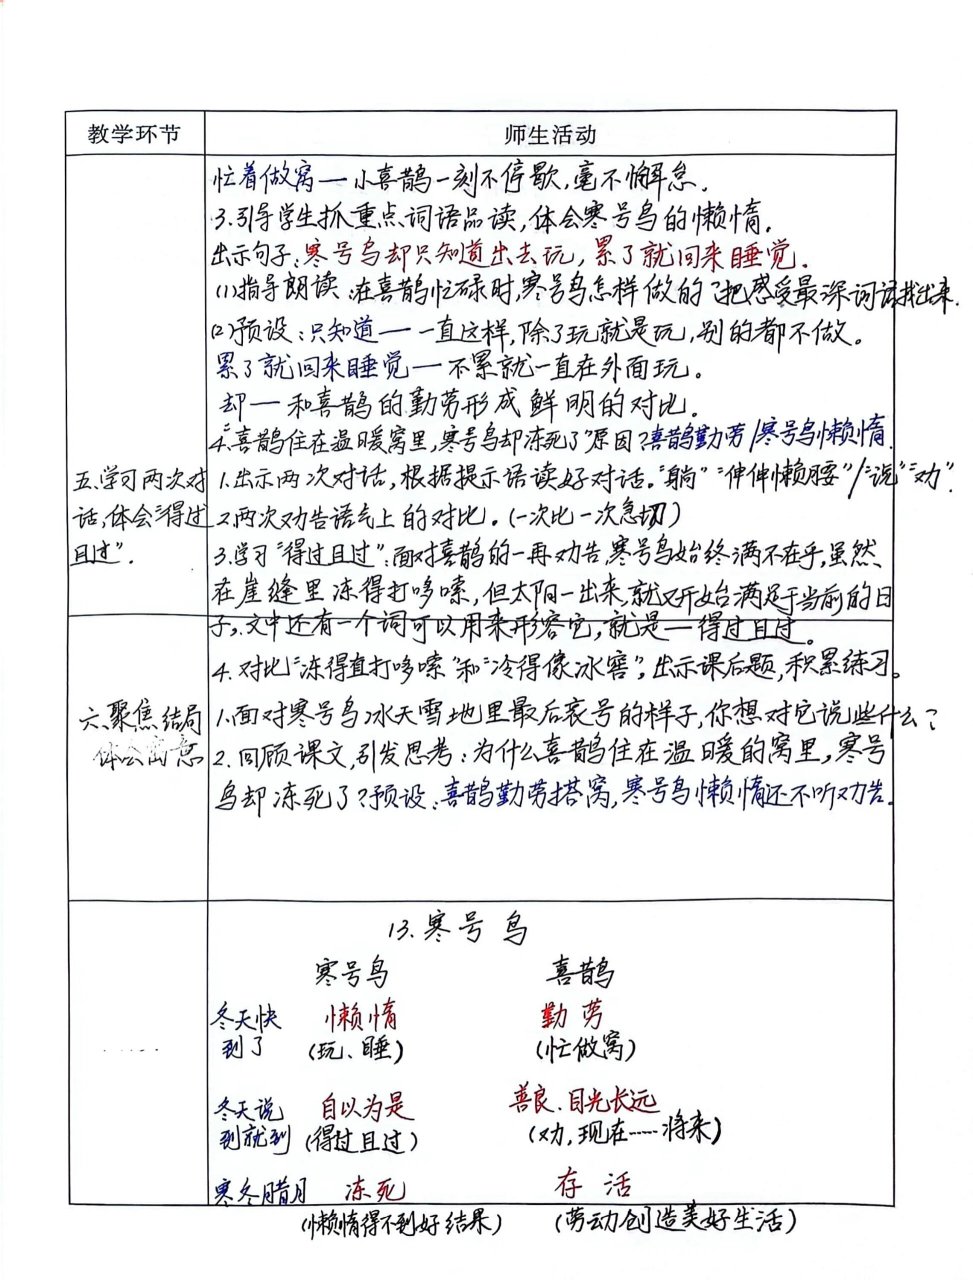 教学环节
师生活动
忙着做窝——小喜鹊一刻不停歇,毫不懈怠.
3.引导学生抓重点词语品读,体会寒号鸟的懒惰.
出示句子:寒号鸟却只知道出去玩,累了就回来睡觉.
(1)指导朗读:在喜鹊忙碌时,寒号鸟怎样做的?把感受最深词语找出来.
(2)预设:只知道——一直这样,除了玩就是玩,别的都不做。
累了就回来睡觉——不累就一直在外面玩。
却——和喜鹊的勤劳形成鲜明的对比.
4.喜鹊住在温暖窝里,寒号鸟却冻死了"原因?喜鹊勤劳/寒号鸟懒惰.
五.学习两次对
话,体会"得过
且过".
1.出示两次对话,根据提示语读好对话."躺""伸伸懒腰"/"说""劝".
2.两次劝告语气上的对比。(一次比一次急切)
3.学习"得过且过":面对喜鹊的一再劝告,寒号鸟始终满不在乎,虽然
在崖缝里冻得打哆嗦,但太阳一出来,就又开始满足于当前的日
子,文中还有一个词可以用来形容它,就是——得过且过。
4.对比"冻得直打哆嗦"和"冷得像冰窖",出示课后题,积累练习。
六.聚焦结局
体会寓意
1.面对寒号鸟冰天雪地里最后哀号的样子,你想对它说些什么?
2.回顾课文,引发思考:为什么喜鹊住在温暖的窝里,寒号
鸟却冻死了?预设:喜鹊勤劳搭窝,寒号鸟懒惰还不听劝告.
13.寒号鸟
寒号鸟 喜鹊
冬天快 懒惰 勤劳
到了 (玩、睡) (忙做窝)
冬天说 自以为是 善良.目光长远
到就到 (得过且过) (劝,现在……将来)
寒冬腊月 冻死 存活
(懒惰得不到好结果) (劳动创造美好生活)